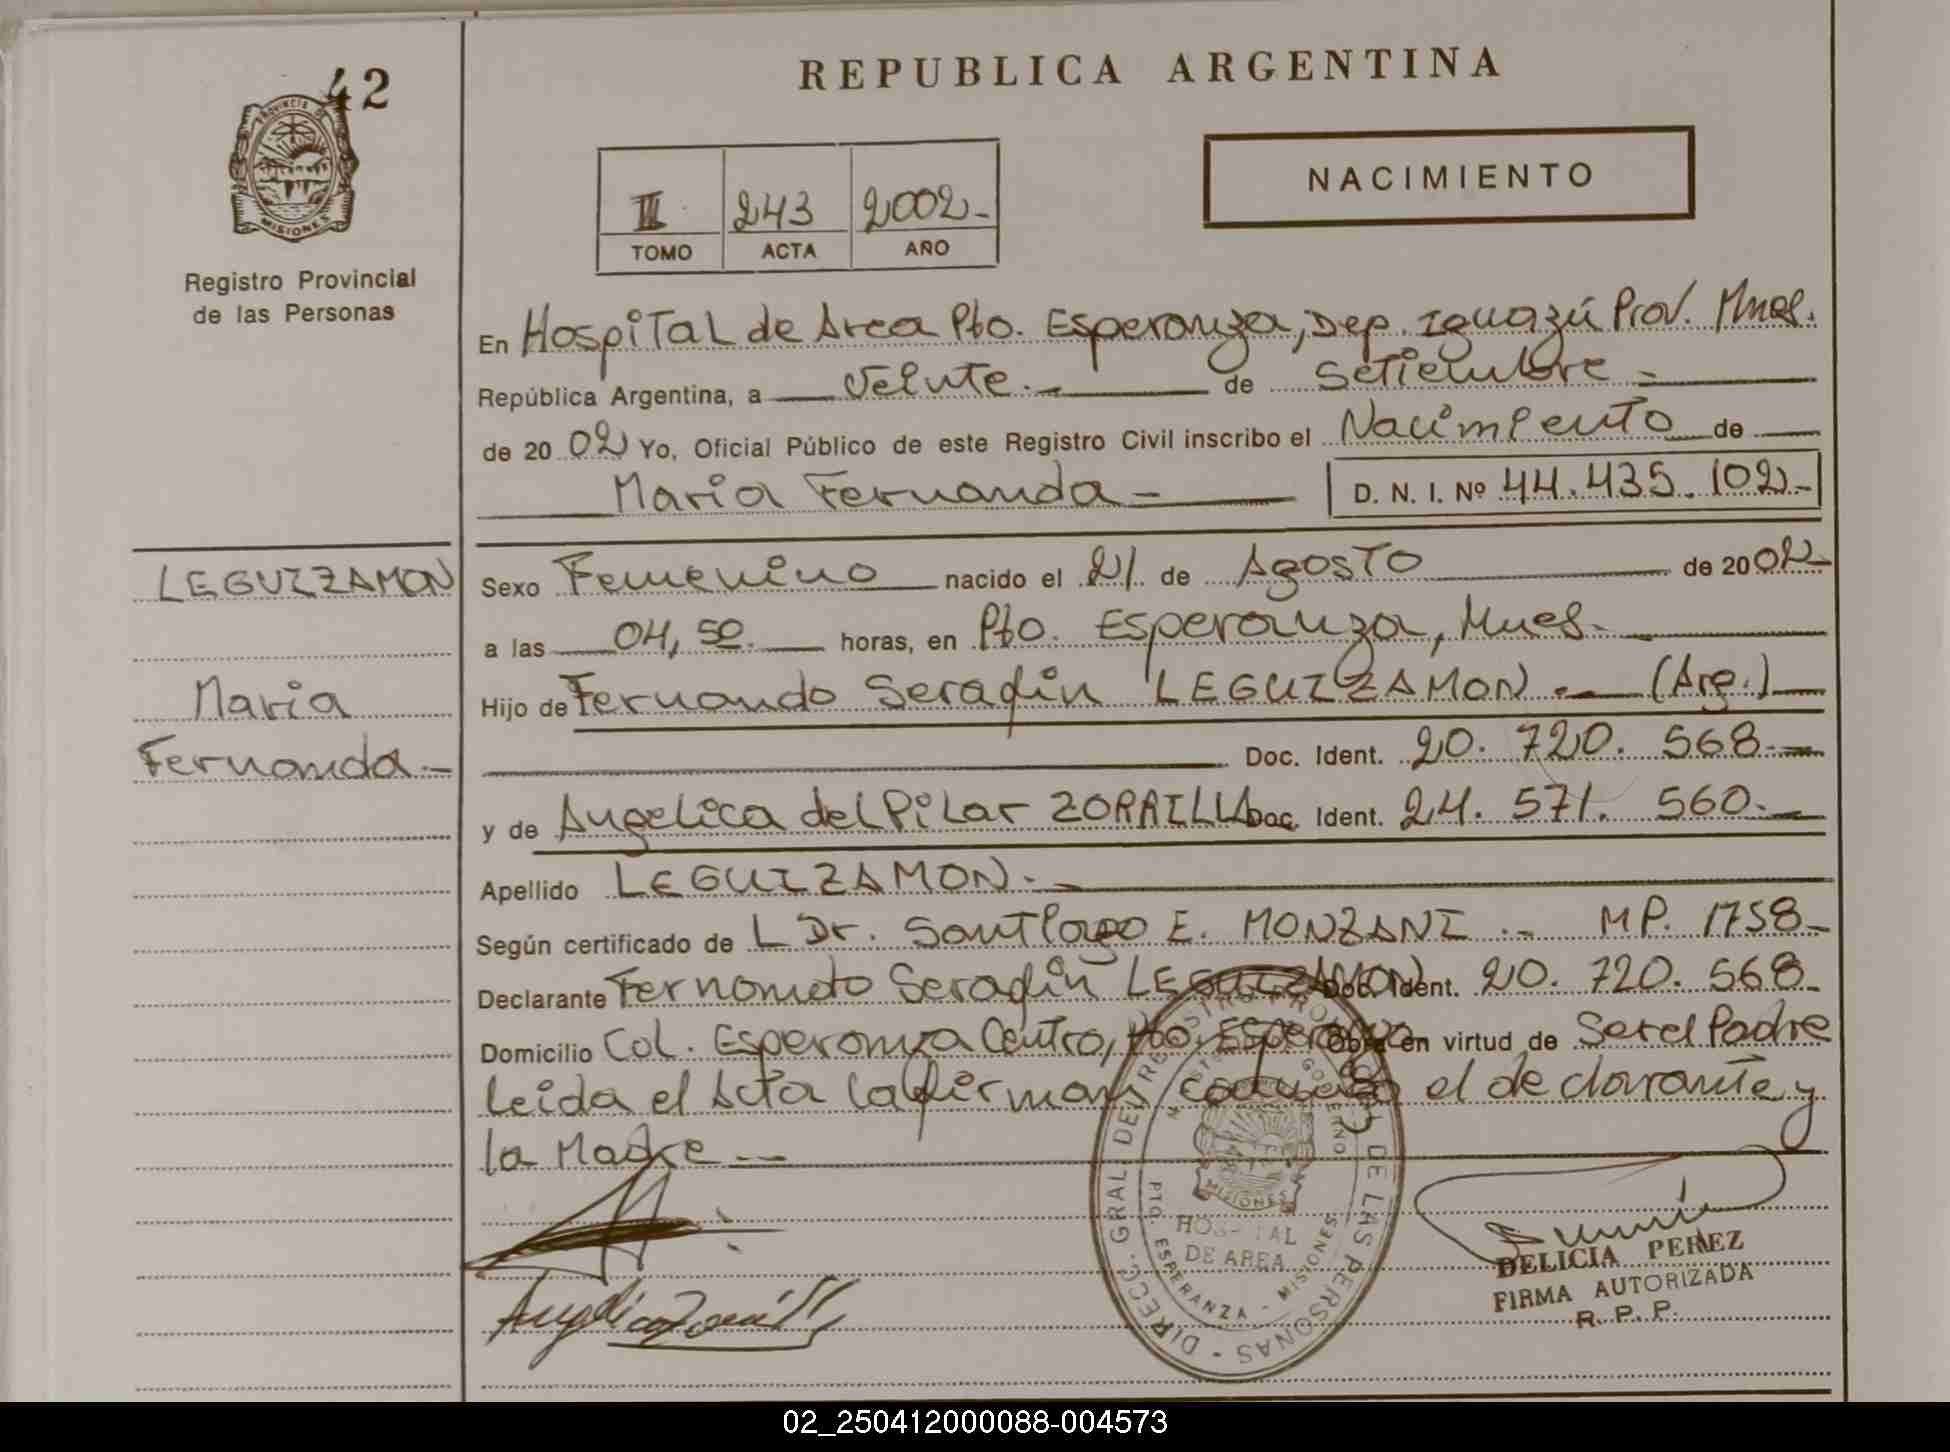 42
REPUBLICA ARGENTINA
PROVINCIA DE
MISIONES
Registro Provincial
de las Personas
II 243 2002-
TOMO ACTA AÑO
NACIMIENTO
En Hospital de Area Pto. Esperanza, Dep. Iguazú Prov. Mnes.
República Argentina, a veinte.- de Setiembre-
de 2002 Yo, Oficial Público de este Registro Civil inscribo el Nacimiento de
Maria Fernanda- D. N. I. Nº 44.435.102-
LEGUIZZAMON
Maria
Fernanda.-
Sexo Femenino nacido el 21 de Agosto de 2002-
a las 04,50. horas, en Pto. Esperanza, Mnes.-
Hijo de Fernando Serafín LEGUIZZAMON.- (Arg.)
Doc. Ident. 20.720.568.-
y de Angelica del Pilar ZORRILLA Doc. Ident. 24.571.560.-
Apellido LEGUIZAMON.-
Según certificado de L Dr. Santiago E. MONZANI.- MP. 1758-
Declarante Fernando Serafín LEGUIZAMON Doc. Ident. 20.720.568-
Domicilio Col. Esperanza Centro, Pto. Esperanza Obra en virtud de Ser el Padre
Leida el Acta la firman, conmigo el declarante y
la Madre.-
DIRECC. GRAL. DEL REGISTRO PROVINCIAL DE LAS PERSONAS
HOSPITAL
DE AREA
PTO. ESPERANZA - MISIONES
MISIONES
DELICIA PEREZ
FIRMA AUTORIZADA
R. P. P.
02_250412000088-004573